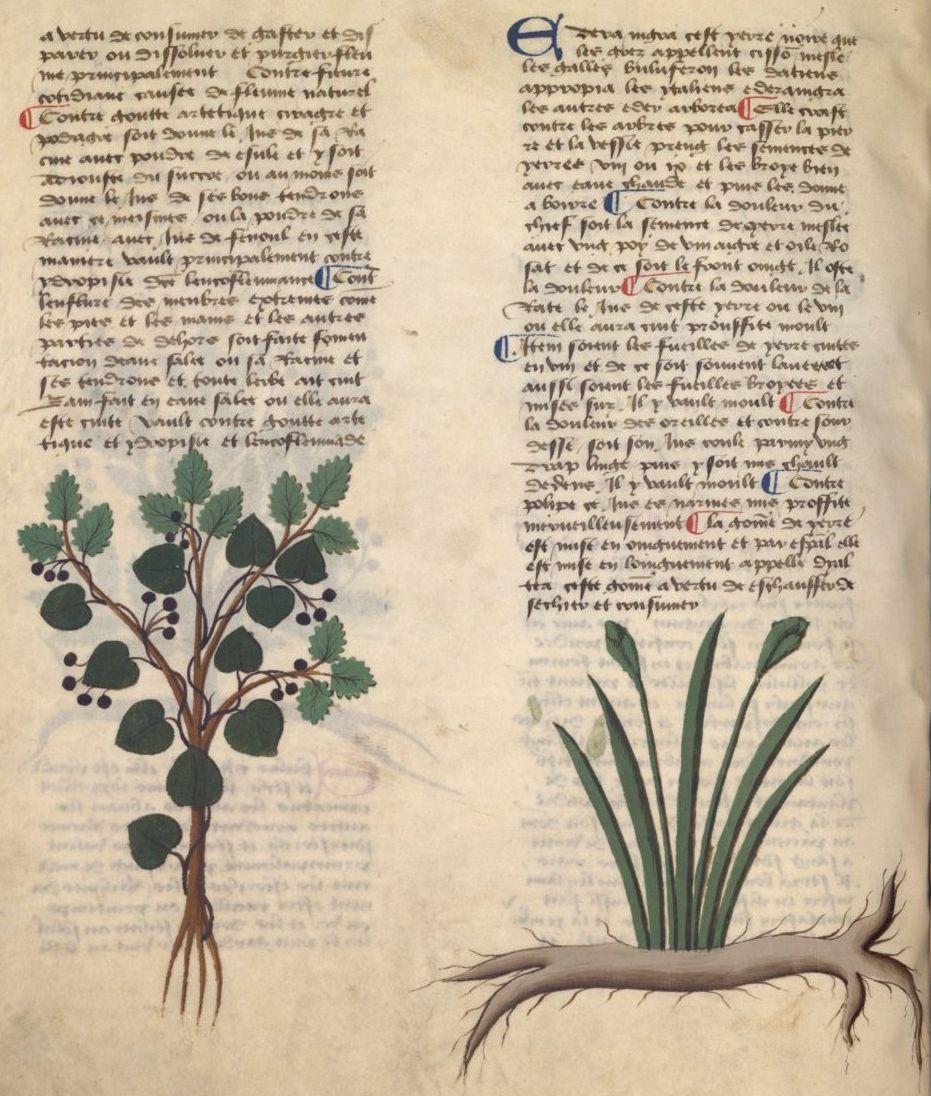 a vertu de consumer de gaster et dis
parer ou dissoluer et purgier fleu
me principalement Contre fieure
cotidiane causee de fleume naturel
Contre goutte artetique ciragre et
podagre soit donne le Jus de sa Ra
cine auec poudre de esule et y soit
adiouste du succre ou au moins soit
donne le Jus de ses bons tendrons
auec ce mesmes ou la poudre de sa
Racine auec Jus de fenoul en ceste
maniere vault principalement contre
ydropisie dce leucofleumance Cont
lenflure des menbres extremes come
les pies et les mains et les autres
parties de dehors soit faite fomen
tacion deaue salee ou sa Racine et
ses tendrons et toute lerbe ait cuit
Bain fait en eaue salee ou elle aura
este cuite vault contre goutte arte
tique et ydropisie et leucofleumade
Edera nigra cest yerre noire que
les grez appellent cisso mesle
les galles buluferon les daciens
appropia les ytaliens ederanigra
les autres eder arborea Elle croist
contre les arbres pour casser la pier
re et la vessie preng les semences de
yerres viii ou ix et les broye bien
auec eaue chaude et puis les donne
a boivre Contre la douleur du
chief soit la semence de yerre meslee
auec vng poy de vin aigre et oile Ro
sat et de ce soit le front oingt Il oste
la douleur Contre la douleur de la
Rate le Jus de ceste yerre ou le vin
ou elle aura cuit prouffite moult
Item soient les fueilles de yerre cuites
en vin et de ce soit souuent laue et
aussi soient les fueilles broyees et
mises sur Il y vault moult Contre
la douleur des oreilles et contre sour
desse soit son Jus coule parmy vng
drap linge puis y soit mis chault
dedens Il y vault moult Contre
polipe ce Jus es narines mis proffite
merueilleusement la gome de yerre
est mise en oinguement et par espal elle
est mise en loinguement appelle dyal
tea ceste gome a vertu de eschauffer de
sechier et consumer